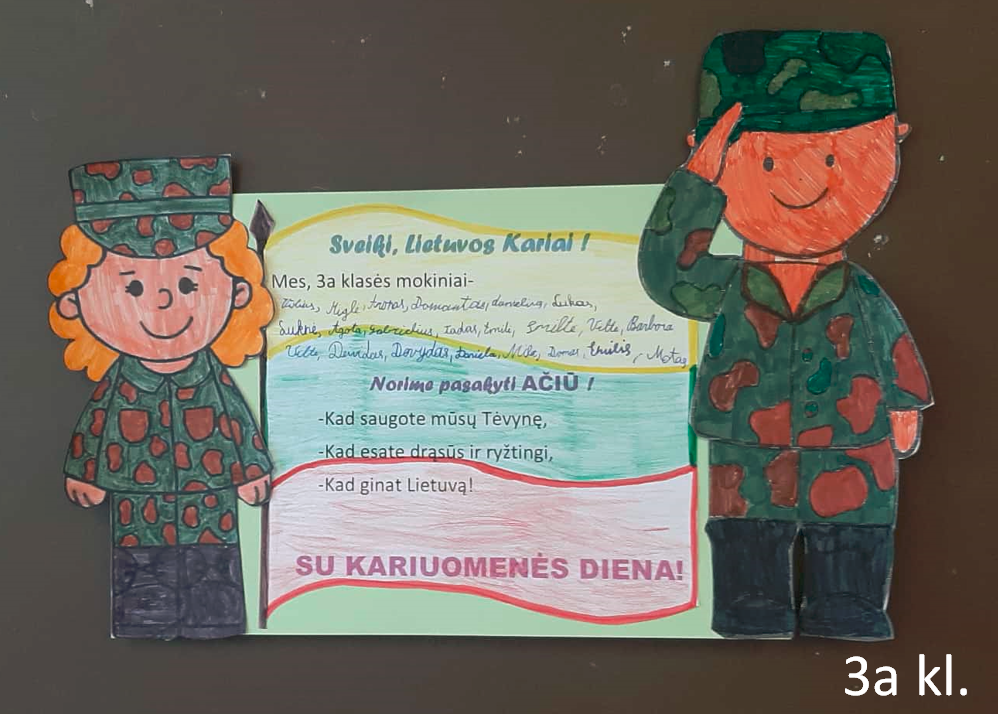 Sveiki, Lietuvos Kariai !
Mes, 3a klasės mokiniai-
Miglė, Domantas, Lukas,
Luknė, Agota, Gabrielius, Tadas, Emilė, Vėtė, Barbora
Deividas, Dovydas, Daniela, Domas, Emilis, Motas
Norime pasakyti AČIŪ !
-Kad saugote mūsų Tėvynę,
-Kad esate drąsūs ir ryžtingi,
-Kad ginat Lietuvą!
SU KARIUOMENĖS DIENA!
3a kl.